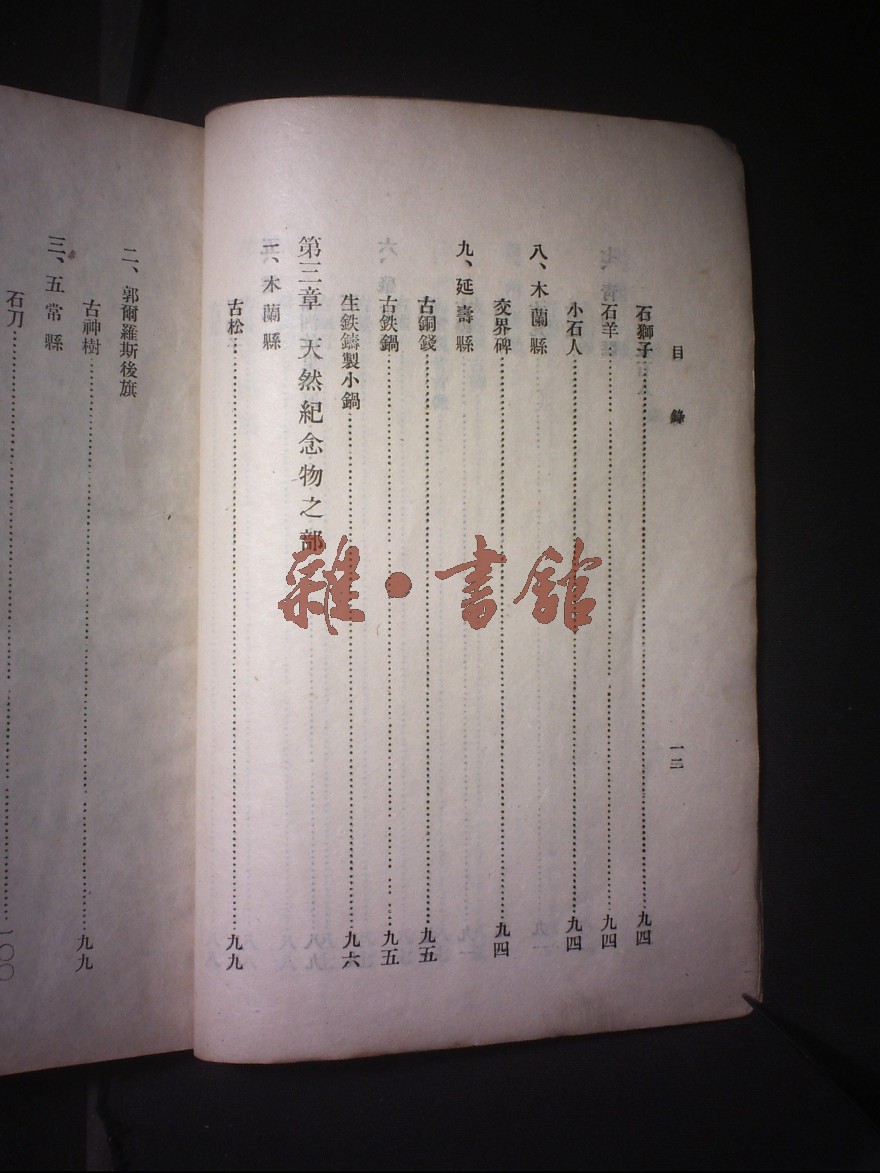 目錄
一二
石獅子……九四
石羊……九四
小石人……九四
八、木蘭縣
交界碑……九四
九、延壽縣
古銅錢……九五
古鉄鍋……九五
生鉄鑄製小鍋……九六
第三章 天然紀念物之部
一、木蘭縣
古松……九九
二、郭爾羅斯後旗
古神樹……九九
三、五常縣
石刀……一〇〇
雜·書館